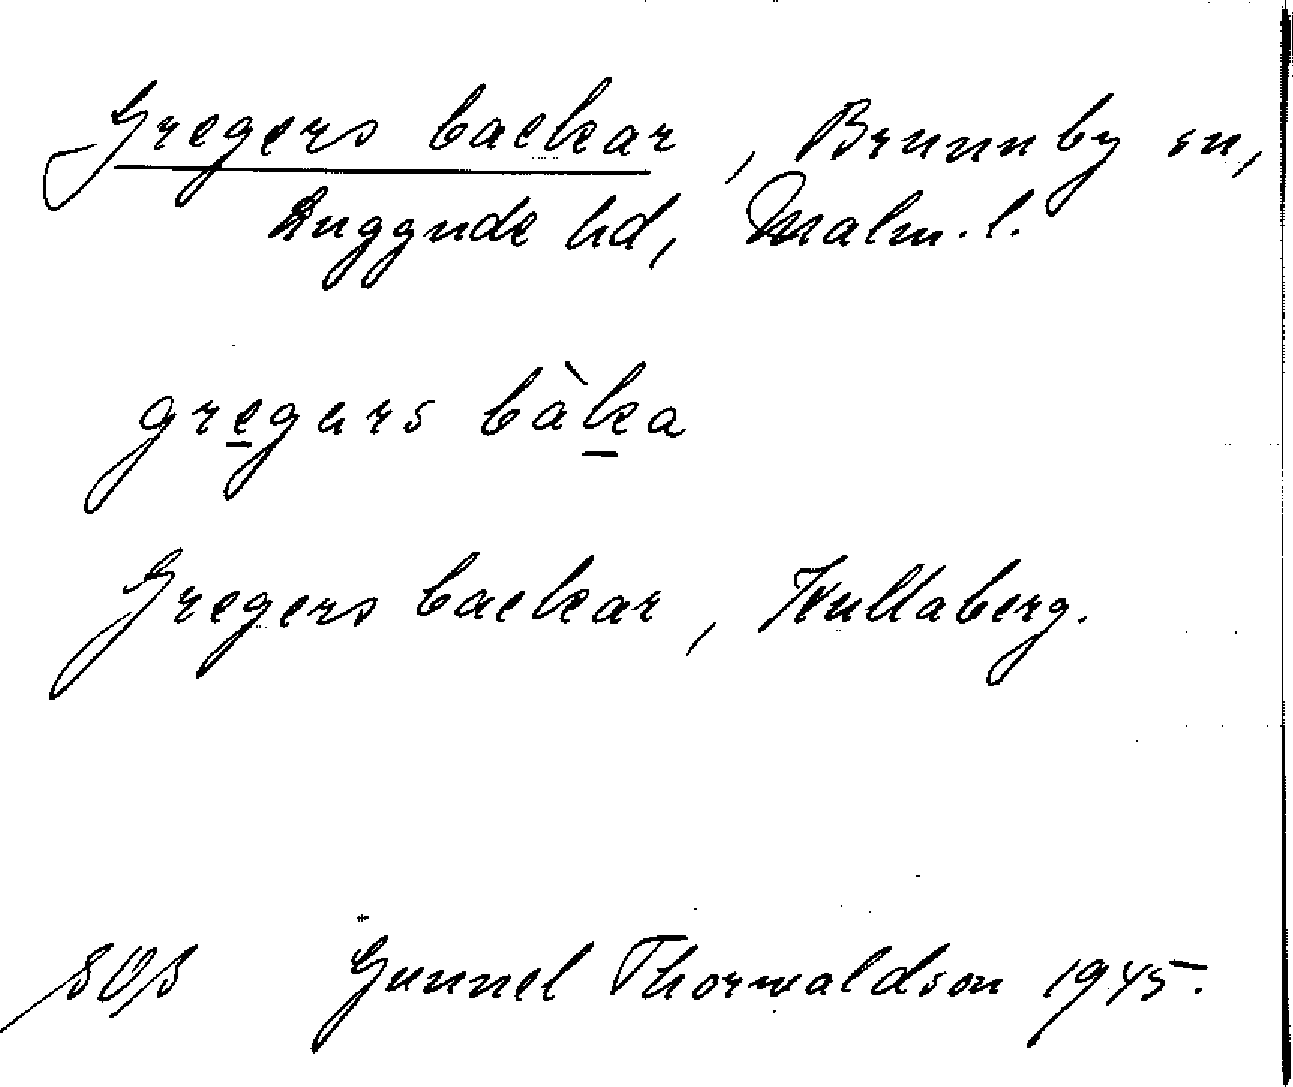 Gregers backar, Brunnby sn,
Luggude hd, Malm. l.
gregars bàka
Gregers backar, Kullaberg.
Gunnel Thorwaldson 1945.